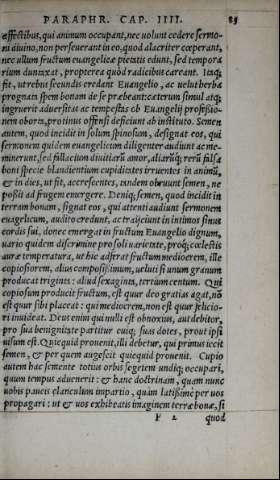 PARAPHR. CAP. IIII. 85
affectibus, qui animum occupant, nec uolunt cedere sermo-
ni diuino, non perseuerant in eo, quod alacriter cœperant,
nec ullum fructum euangelicæ pietatis edunt, sed tempora
rium duntaxat, propterea quod radicibus careant. Itaq;
fit, ut rebus secundis credant Euangelio, ac uelut herba
prognata spem bonam de se præbeant: cæterum simul atq;
ingruerit aduersitas ac tempestas ob Euangelij professio-
nem oborta, protinus offensi deficiunt ab instituto. Semen
autem, quod incidit in solum spinosum, designat eos, qui
sermonem quidem euangelicum diligenter audiunt ac me-
minerunt, sed fallacium diuitiarũ amor, aliarũq; rerũ falsa
boni specie blandientium cupiditates irruentes in animũ,
& in dies, ut fit, accrescentes, eundem obruunt semen, ne
possit ad frugem emergere. Deniq; semen, quod incidit in
terram bonam, signat eos, qui attenti audiunt sermonem
euagelicum, audito credunt, ac traijciunt in intimos sinus
cordis sui, donec emergat in fructum Euangelio dignum,
uario quidem discrimine pro soli uarietate, proq; cœlestis
auræ temperatura, ut hic adferat fructum mediocrem, ille
copiosiorem, alius compositissimum, ueluti si unum granum
producat triginta: aliud sexaginta, tertium centum. Qui
copiosum producit fructum, est quur deo gratias agat, nõ
est quur sibi placeat: qui mediocrem, non est quur felicio-
ri inuideat. Deus enim qui nulli est obnoxius, aut debitor,
pro sua benignitate partitur cuiq; suas dotes, prout ipsi
uisum est. Quicquid prouenit, illi debetur, qui primus iecit
semen, & per quem augescit quicquid prouenit. Cupio
autem hac semente totius orbis segetem undiq; occupari,
quum tempus aduenerit: & hanc doctrinam, quam nunc
uobis paucis clanculum impartio, quàm latissimè per uos
propagari: ut & uos exhibeatis imaginem terræ bonæ, si
F 2 quod